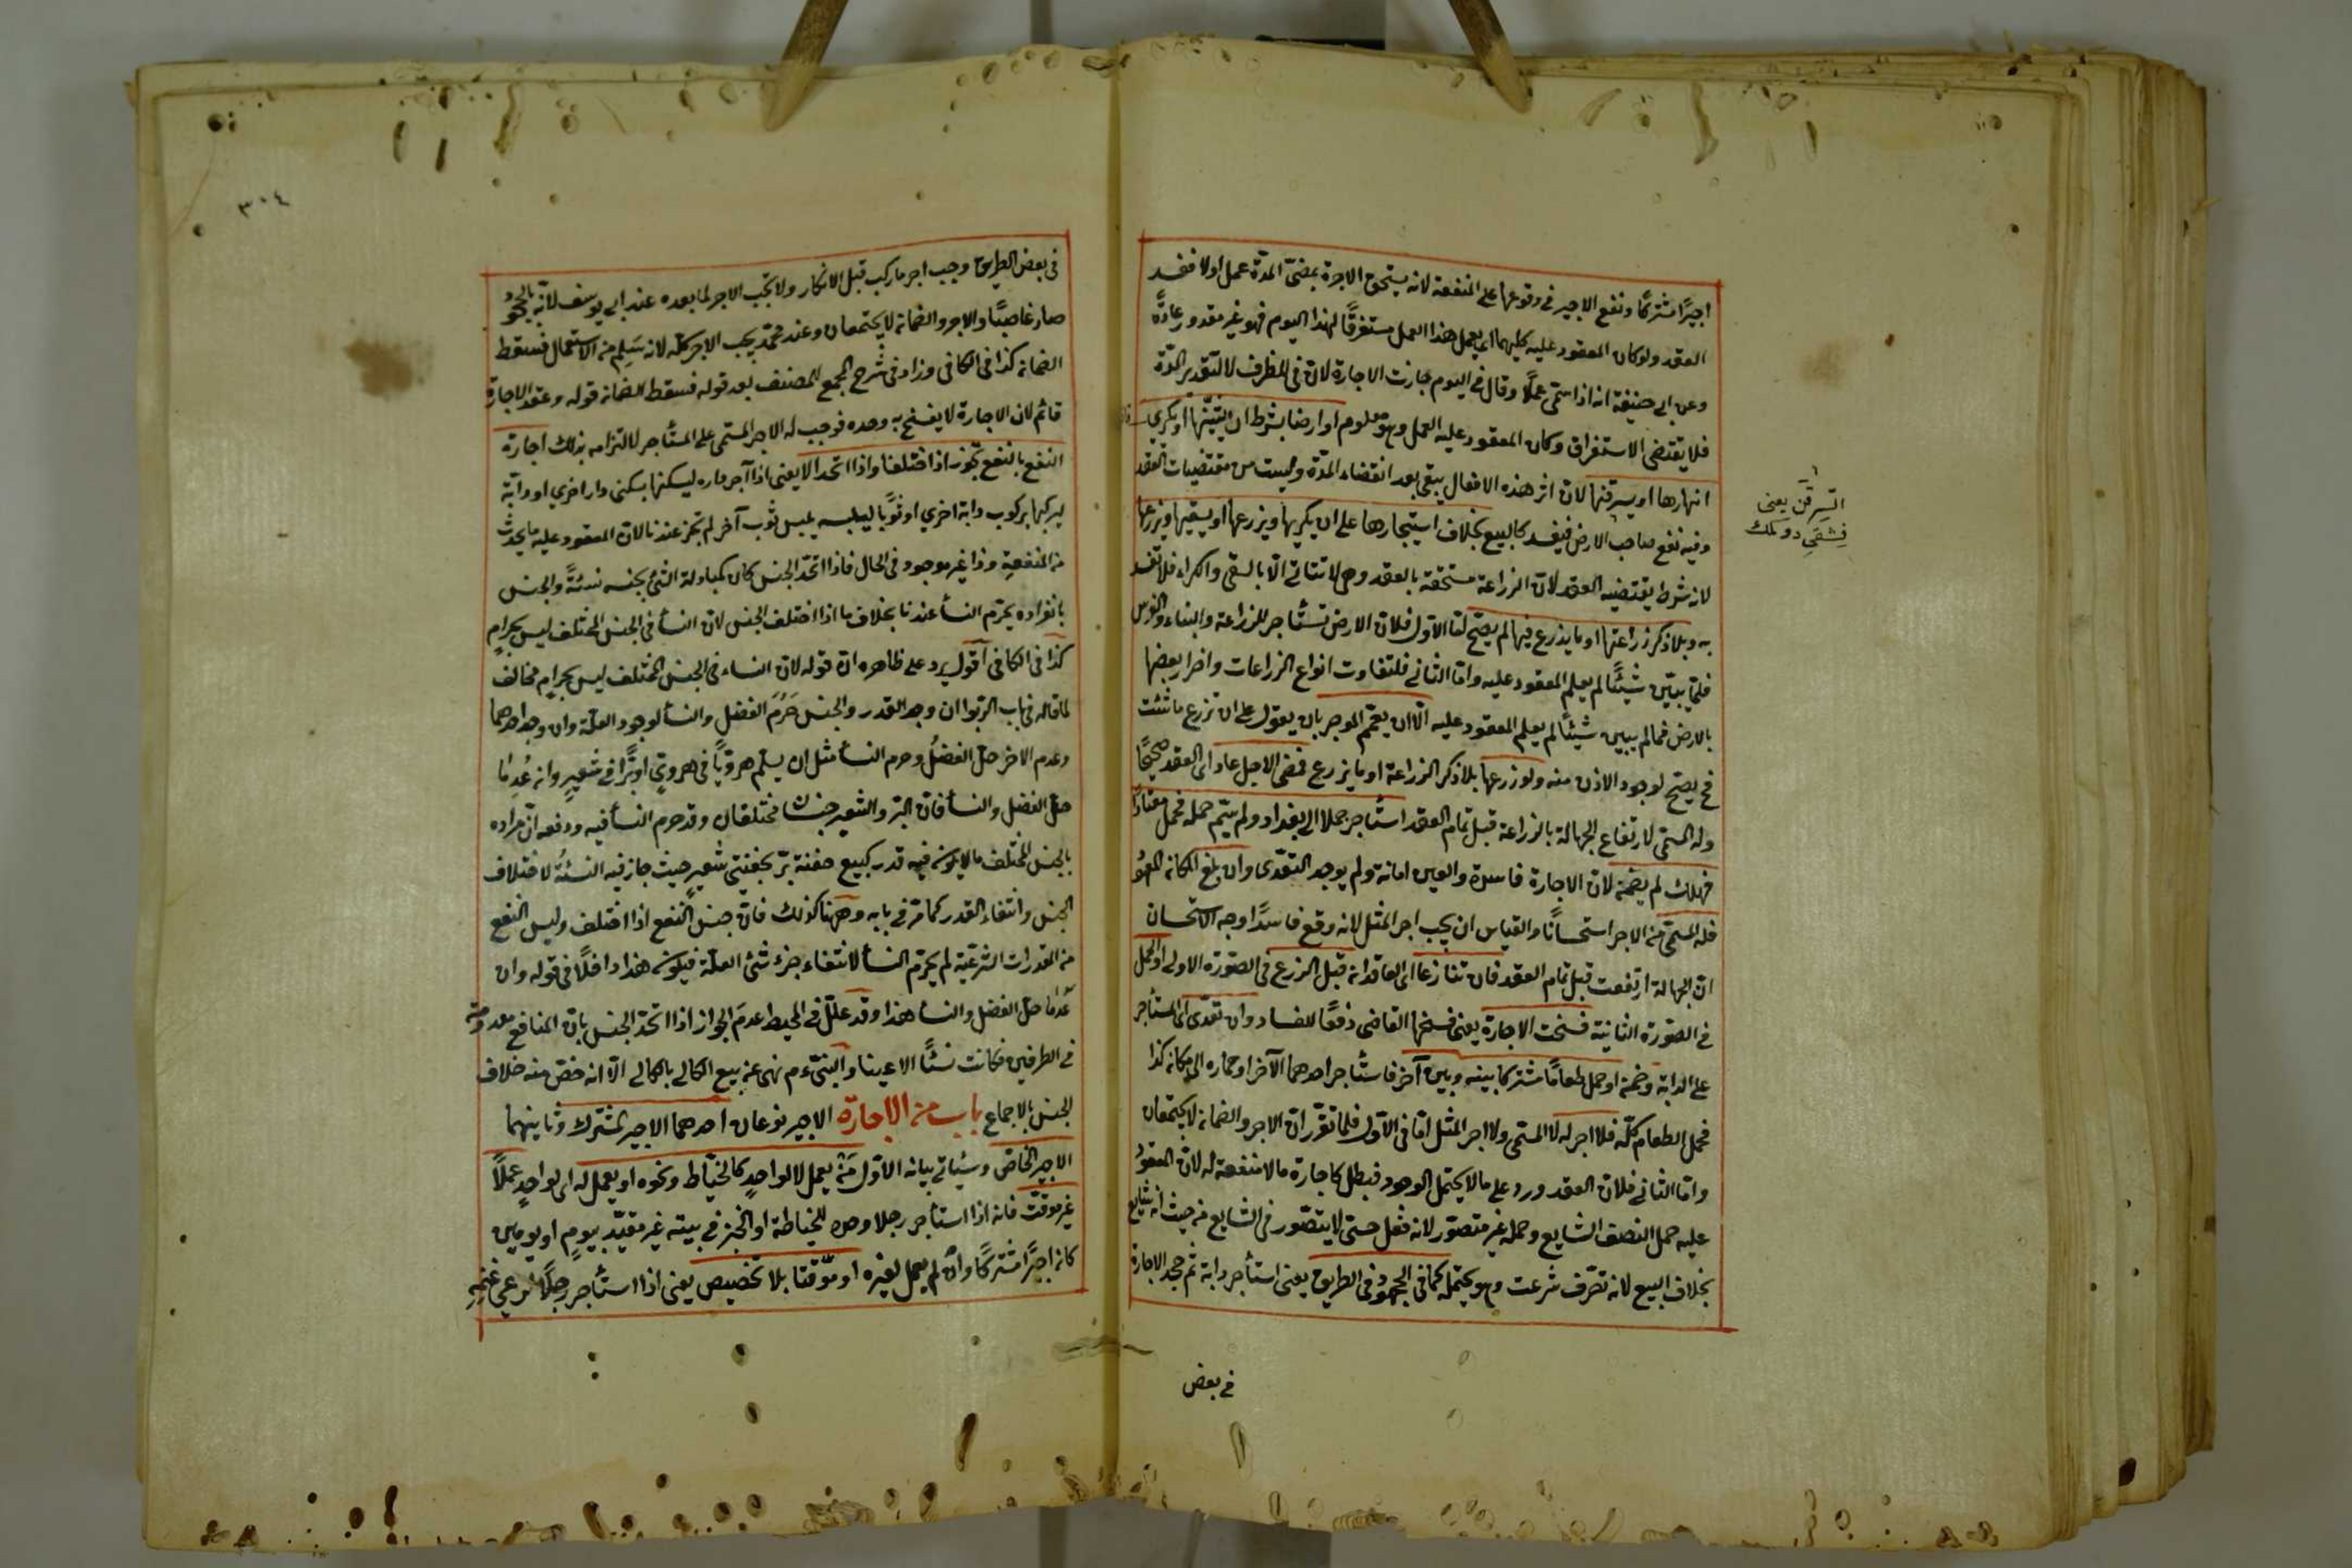 اجيرا مشتركا ونفع الاجير في وقوعها على المنفعة لانه يستحق الاجرة بمضى المدة عمل اولا ففسد
العقد ولو كان المعقود عليه كليهما اى يعمل هذا العمل مستغرقا لهذا اليوم فهو غير مقدور عادة
وعن ابى حنيفة انه اذا سمى عملا وقال في اليوم جازت الاجارة لان في للظرف لا لتقدير المدة
فلا يقتضى الاستغراق وكان المعقود عليه العمل وهو معلوم او ارضا بشرط ان يثنيها او يكري
انهارها او يسرقنها لان اثر هذه الافعال يبقى بعد انقضاء المدة وليست من مقتضيات العقد
وفيه نفع صاحب الارض فيفسد كالبيع بخلاف استيجارها على ان يكريها ويزرعها او يسقيها ويزرعها
لانه شرط يقتضيه العقد لان الزراعة مستحقة بالعقد وهى لا تتاتى الا بالسقى والكراء فلا تفسد
به وبلا ذكر زراعتها او ما يزرع فيها لم يصح لنا الاول فلان الارض تستأجر للزراعة والبناء والغرس
فلما يبين شيئا لم يعلم المعقود عليه واما الثانى فلتفاوت انواع الزراعات واضرار بعضها
بالارض فما لم يبين شيئا لم يعلم المعقود عليه الا ان يعمم الموجر بان يقول على ان تزرع ما شئت
فح يصح لوجود الاذن منه ولو زرعها بلا ذكر الزراعة او ما يزرع فمضى الاجل عاد الى العقد صحيحا
وله المسمى لارتفاع الجهالة بالزراعة قبل تمام العقد استأجر جملا الى بغداد ولم يسم حمله فحمل معتادا
فهلك لم يضمنه لان الاجارة فاسدة والعين امانة ولم يوجد التعدى وان بلغ المكانه المعهود
فله المسمى من الاجر استحسانا والقياس ان يجب اجر المثل لانه وقع فاسدا وجه الاستحسان
ان الجهالة ارتفعت قبل تمام العقد فان تنازعا اى العاقدان قبل الزرع في الصورة الاولى او الحمل
في الصورة الثانية فسخت الاجارة يعنى فسخها القاضى دفعا للفساد وان تعدى اى المستأجر
على الدابة وضمنه او حمل طعاما مشتركا بينه وبين آخر فاستأجر احدهما الآخر او حماره الى مكانه كذا
فحمل الطعام كله فلا اجر له لا المسمى ولا اجر المثل اما في الاول فلما تقرر ان الاجر والضمان لا يجتمعان
واما الثانى فلان العقد ورد على ما لا يحتمل الوجود فبطل كاجارة ما لا منفعة له لان المعقود
عليه حمل النصف الشايع وحمله غير متصور لانه فعل حسى لا يتصور في الشايع من حيث انه شايع
بخلاف البيع لانه تصرف شرعت وهو يحتمله كما في الجحود في الطريق يعنى استأجر دابة ثم جحد الاجارة
في بعض
السرقن يعنى
فشقى دوكمك
٣٠٤
في بعض الطريق وجب اجر ما ركب قبل الانكار ولا يجب الاجر لما بعده عند ابى يوسف لانه بالجحود
صار غاصبا والاجر والضمان لا يجتمعان وعند محمد يجب الاجر كله لانه سلم من الاستعمال فسقط
الضمان كذا في الكافى وزاد في شرح المجمع للمصنف بعد قوله فسقط الضمان قوله وعقد الاجارة
قائم لان الاجارة لا يفسخ به وحده فوجب له الاجر المسمى على المستأجر لالتزامه بذلك اجارة
النفع بالنفع تجوز اذا اختلفا واذا اتحدا لا يعنى اذا آجر داره ليسكنها بسكنى دار اخرى او دابة
ليركبها بركوب دابة اخرى او ثوبا ليلبسه بلبس ثوب آخر لم تجز عندنا لان المعقود عليه ما يحدث
من المنفعة وذا غير موجود في الحال فاذا اتحد الجنس كان كمبادلة الشئ بجنسه نسئة والجنس
بانفراده يحرم النسأ عندنا بخلاف ما اذا اختلف الجنس لان النسأ في الجنس المختلف ليس بحرام
كذا في الكافى اقول يرد على ظاهره ان قوله لان النساء في الجنس المختلف ليس بحرام مخالف
لما قاله في باب الربوا ان وجد القدر والجنس حرم الفضل والنسأ لوجود العلة وان وجد احدهما
وعدم الاخر حل الفضل وحرم النسأ مثل ان يسلم هرويا في هروي او برا في شعير وان عدما
حل الفضل والنسأ فان البر والشعير جنسان مختلفان وقد حرم النسأ فيه ودفعه ان مراده
بالجنس المختلف ما لا يكون فيه قدر كبيع حفنة بر بحفنتى شعير حيث جاز فيه النسئة لاختلاف
الجنس وانتفاء القدر كما مر في بابه وههنا كذلك فان جنس النفع اذا اختلف وليس النفع
من المقدرات الشرعية لم يحرم النسأ لانتفاء جزء شئ العلة فيكون هذا داخلا في قوله وان
عدما حل الفضل والنسأ هذا وقد علل في المحيط عدم الجواز اذا اتحد الجنس بان المنافع معدومة
في الطرفين فكانت نسئا لا عينا والنبى ءم نهى عن بيع الكالى بالكالى الا انه خص منه خلاف
الجنس بالاجماع باب من الاجارة الاجير نوعان احدهما الاجير المشترك وثانيهما
الاجير الخاص وسيأتى بيانه الاول من يعمل لا لواحد كالخياط ونحوه او يعمل له اى لواحد عملا
غير موقت فانه اذا استأجر رجلا وحده للخياطة او الخبز في بيته غير مقيد بيوم او يومين
كانه اجيرا مشتركا وان لم يعمل لغيره او موقتا بلا تخصيص يعنى اذا استأجر رجلا لرعى غنمه